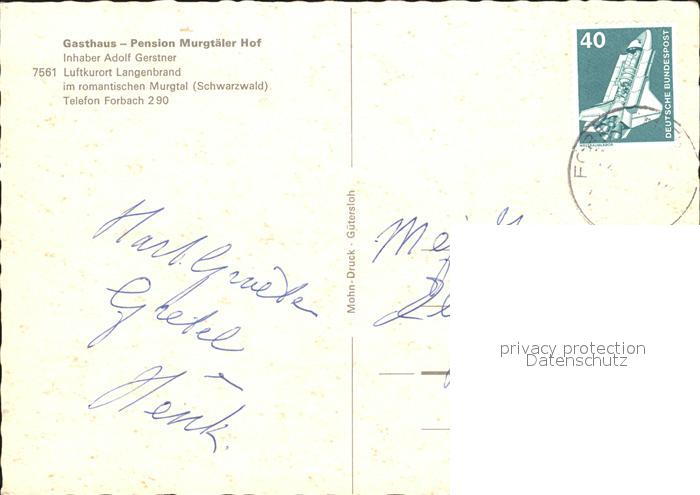 Gasthaus – Pension Murgtäler Hof
Inhaber Adolf Gerstner
7561 Luftkurort Langenbrand
im romantischen Murgtal (Schwarzwald)
Telefon Forbach 2 90
40
DEUTSCHE BUNDESPOST
WELTRAUMLABOR
Mohn-Druck · Gütersloh
Hart. Groeten
Gretel
Henk.
privacy protection
Datenschutz